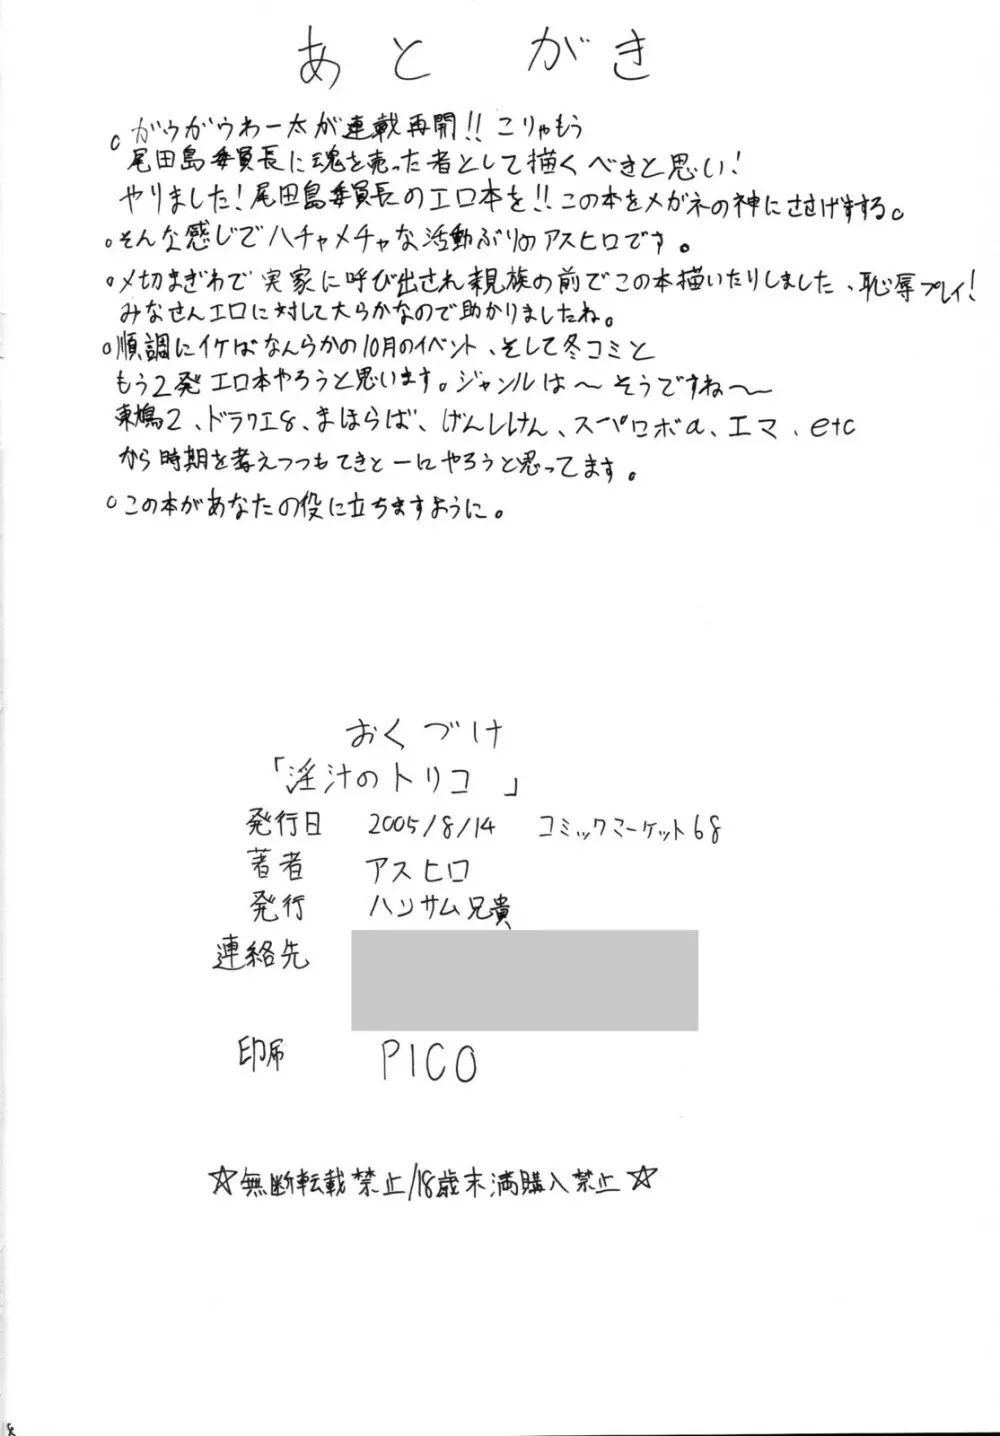 あとがき
○ガウガウわー太が連載再開!!こりゃもう
尾田島委員長に魂を売った者として描くべきと思い!
やりました!尾田島委員長のエロ本を!!この本をメガネの神にささげまする。
○そんな感じでハチャメチャな活動ぶりのアスヒロです。
○〆切まぎわで実家に呼び出され親族の前でこの本描いたりしました、恥辱プレイ!
みなさんエロに対して大らかなので助かりましたね。
○順調にイケばなんらかの10月のイベント、そして冬コミと
もう2発エロ本やろうと思います。ジャンルは〜そうですね〜
東鳩2、ドラクエ8、まほらば、げんしけん、スーパロボα、エマ、etc
から時期を考えつつもてきとーにやろうと思ってます。
○この本があなたの役に立ちますように。
おくづけ
「淫汁のトリコ」
発行日 2005/8/14 コミックマーケット68
著者 アスヒロ
発行 ハンサム兄貴
連絡先
印刷 PICO
☆無断転載禁止/18歳末満購入禁止☆